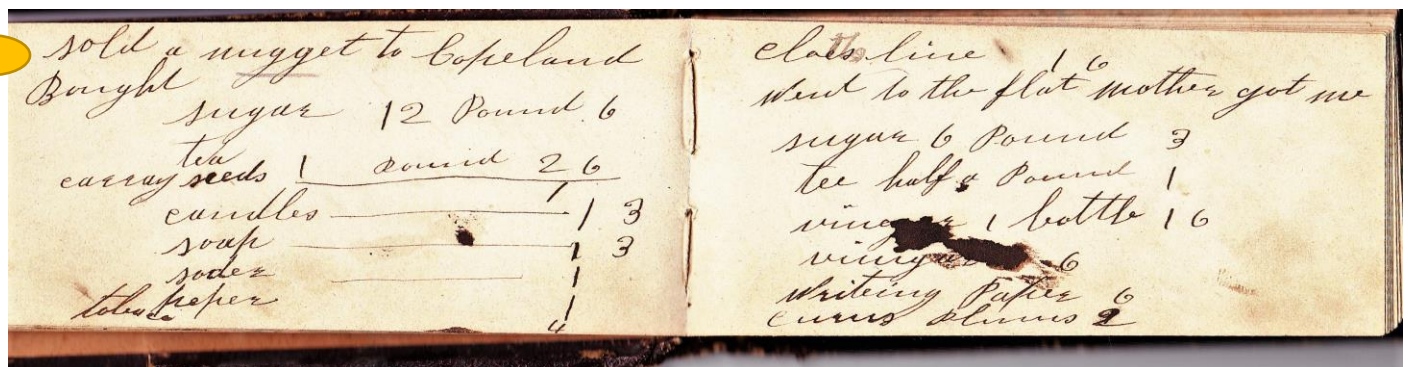 sold a nugget to Copeland
Bought
sugar 12 Pound 6
tea
carray seeds 1 Pound 2 6
1
candles 1 3
soap 1 3
soder 1
peper 1
tobaco 4
cloes line 1 6
Went to the flat mother got me
sugar 6 Pound 3
tee half a Pound 1
vinegar 1 bottle 1 6
6
Writeing Paper 6
plums 2